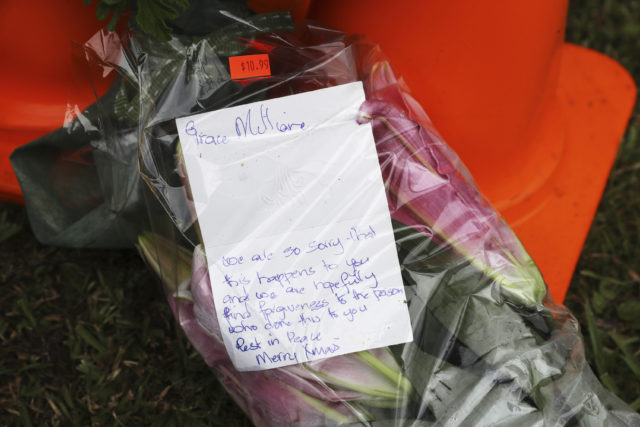 $10.99
Grace Millane
we are so sorry that
this happens to you
and we are hopefully
find forgiveness to the person
who done this to you
Rest in Peace
Merry Xmas